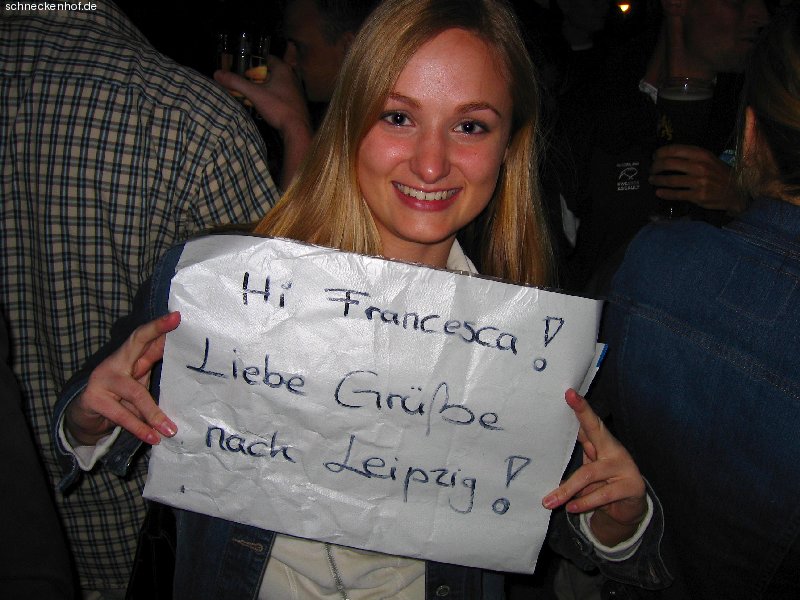 schneckenhof.de
Hi Francesca!
Liebe Grüße
nach Leipzig!